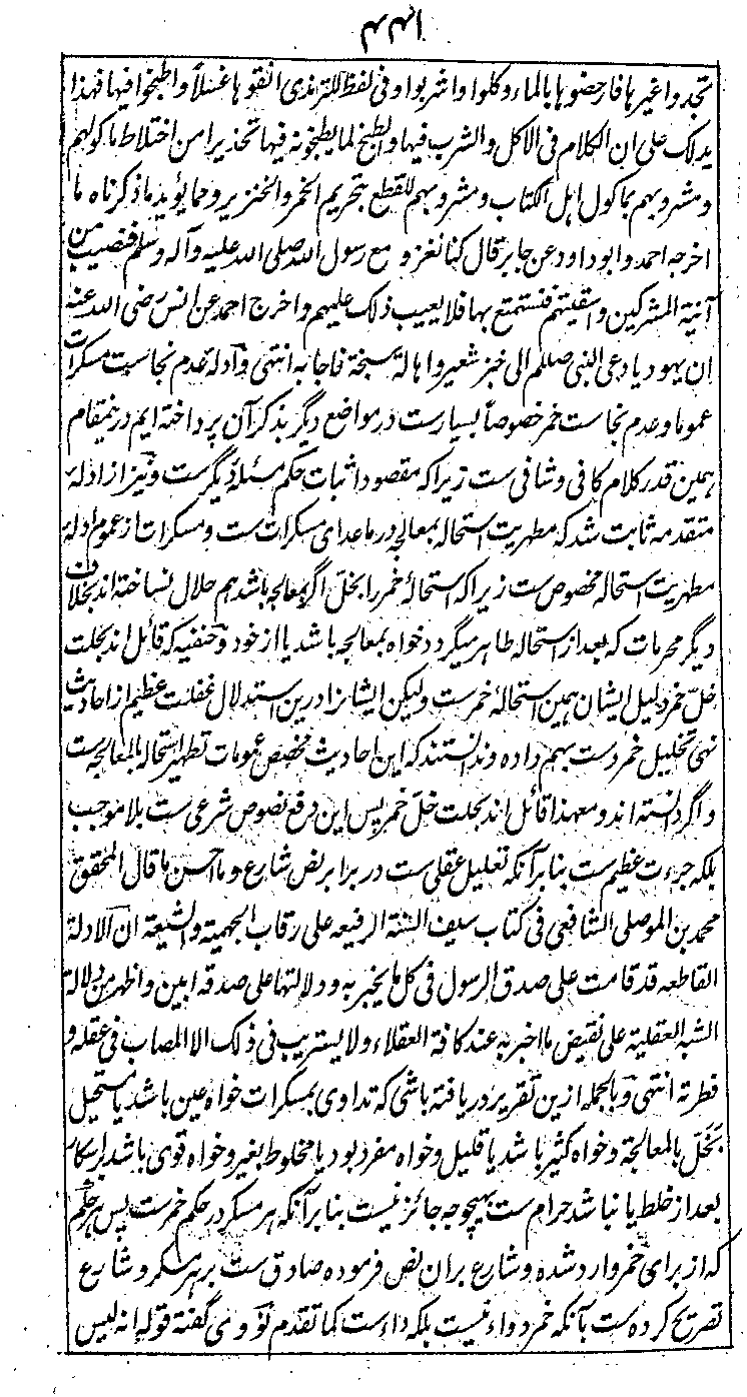 ۴۴۱
تجدوا غیرها فارحضوها بالماء وکلوا واشربوا وفی لفظ للترمذی انقوها غسلاً واطبخوا فیها فهذا
یدلک علی ان الکلام فی الاکل والشرب فیها والطبخ لما یطبخونه فیها تحذیرا من اختلاط ماکولهم
ومشروبهم بماکول اهل الکتاب ومشروبهم للقطع بتحریم الخمر والخنزیر ومما یؤید ما ذکرناه ما
اخرجه احمد وابو داود عن جابر قال کنا نغزو مع رسول الله صلی الله علیه وآله وسلم فنصیب من
آنیة المشرکین واسقیتهم فنستمتع بها فلا یعیب ذلک علیهم واخرج احمد عن انس رضی الله عنه
ان یهودیا دعی النبی صللم الی خبز شعیر واهالة سنخة فاجابه انتهی وادلهٔ عدم نجاست مسکرات
عموما وعدم نجاست خمر خصوصاً بسیارست در مواضع دیگر بذکر آن پرداخته ایم درینمقام
همین قدر کلام کافی وشافی ست زیرا که مقصود اثبات حکم مسئلهٔ دیگرست ونیز از ادلهٔ
متقدمه ثابت شد که مطهریت استحاله بمعالجه در ماعدای مسکرات ست ومسکرات از عموم ادلهٔ
مطهریت استحاله مخصوص ست زیرا که استحالهٔ خمر را بخل اگر بمعالجه باشد هم حلال نساخته اند بخلاف
دیگر محرمات که بعد از استحاله طاهر میگردد خواه بمعالجه باشد یا از خود وحنفیه که قائل اند بحلت
خل خمر دلیل ایشان همین استحالهٔ خمرست ولیکن ایشانرا درین استدلال غفلت عظیم از احادیث
نهی تخلیل خمر دست بهم داده وندانستند که این احادیث مخصص عمومات تطهیر استحاله بالمعالجه ست
واگر دانسته اند ومعهذا قائل اند بحلت خل خمر پس این دفع نصوص شرعی ست بلا موجب
بلکه جرءت عظیم ست بنابر آنکه تعلیل عقلی ست در برابر نص شارع وما احسن ما قال المحقق
محمد بن الموصلی الشافعی فی کتاب سیف السنة الرفیعه علی رقاب الجهمیة والشیعة ان الادلة
القاطعه قد قامت علی صدق الرسول فی کل ما یخبر به ودلالتها علی صدقه ابین واظهر من دلالة
الشبه العقلیة علی نقیض ما اخبر به عند کافة العقلاء ولا یستریب فی ذلک الا المصاب فی عقله و
فطرته انتهی وبالجمله ازین تقریر دریافته باشی که تداوی بمسکرات خواه عین باشد یا مستحیل
بخل بالمعالجة وخواه کثیر باشد یا قلیل وخواه مفرد بود یا مخلوط بغیر وخواه قوی باشد بر اسکار
بعد از خلط یا نباشد حرام ست بهیچوجه جائز نیست بنابر آنکه هر مسکر در حکم خمرست پس هر حکم
که از برای خمر وارد شده وشارع بران نص فرموده صادق ست بر هر مسکر وشارع
تصریح کرده ست بآنکه خمر دواء نیست بلکه داء ست کما تقدم نووی گفته قوله انه لیس